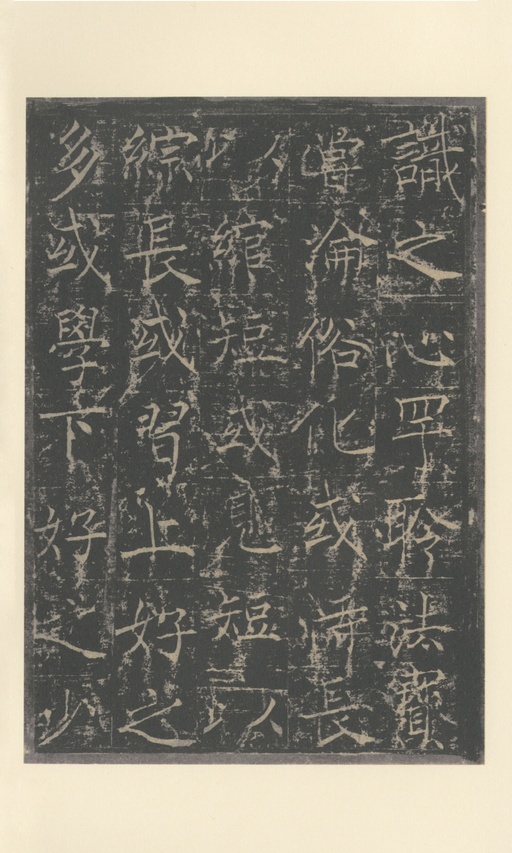 識之心罕聆法寶
淪俗化或恃長
以綰短或短以
綜長或習上好之
多或學下好之少